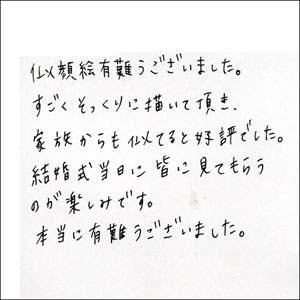 似顔絵有難うございました。
すごくそっくりに描いて頂き、
家族からも似てると好評でした。
結婚式当日に皆に見てもらう
のが楽しみです。
本当に有難うございました。